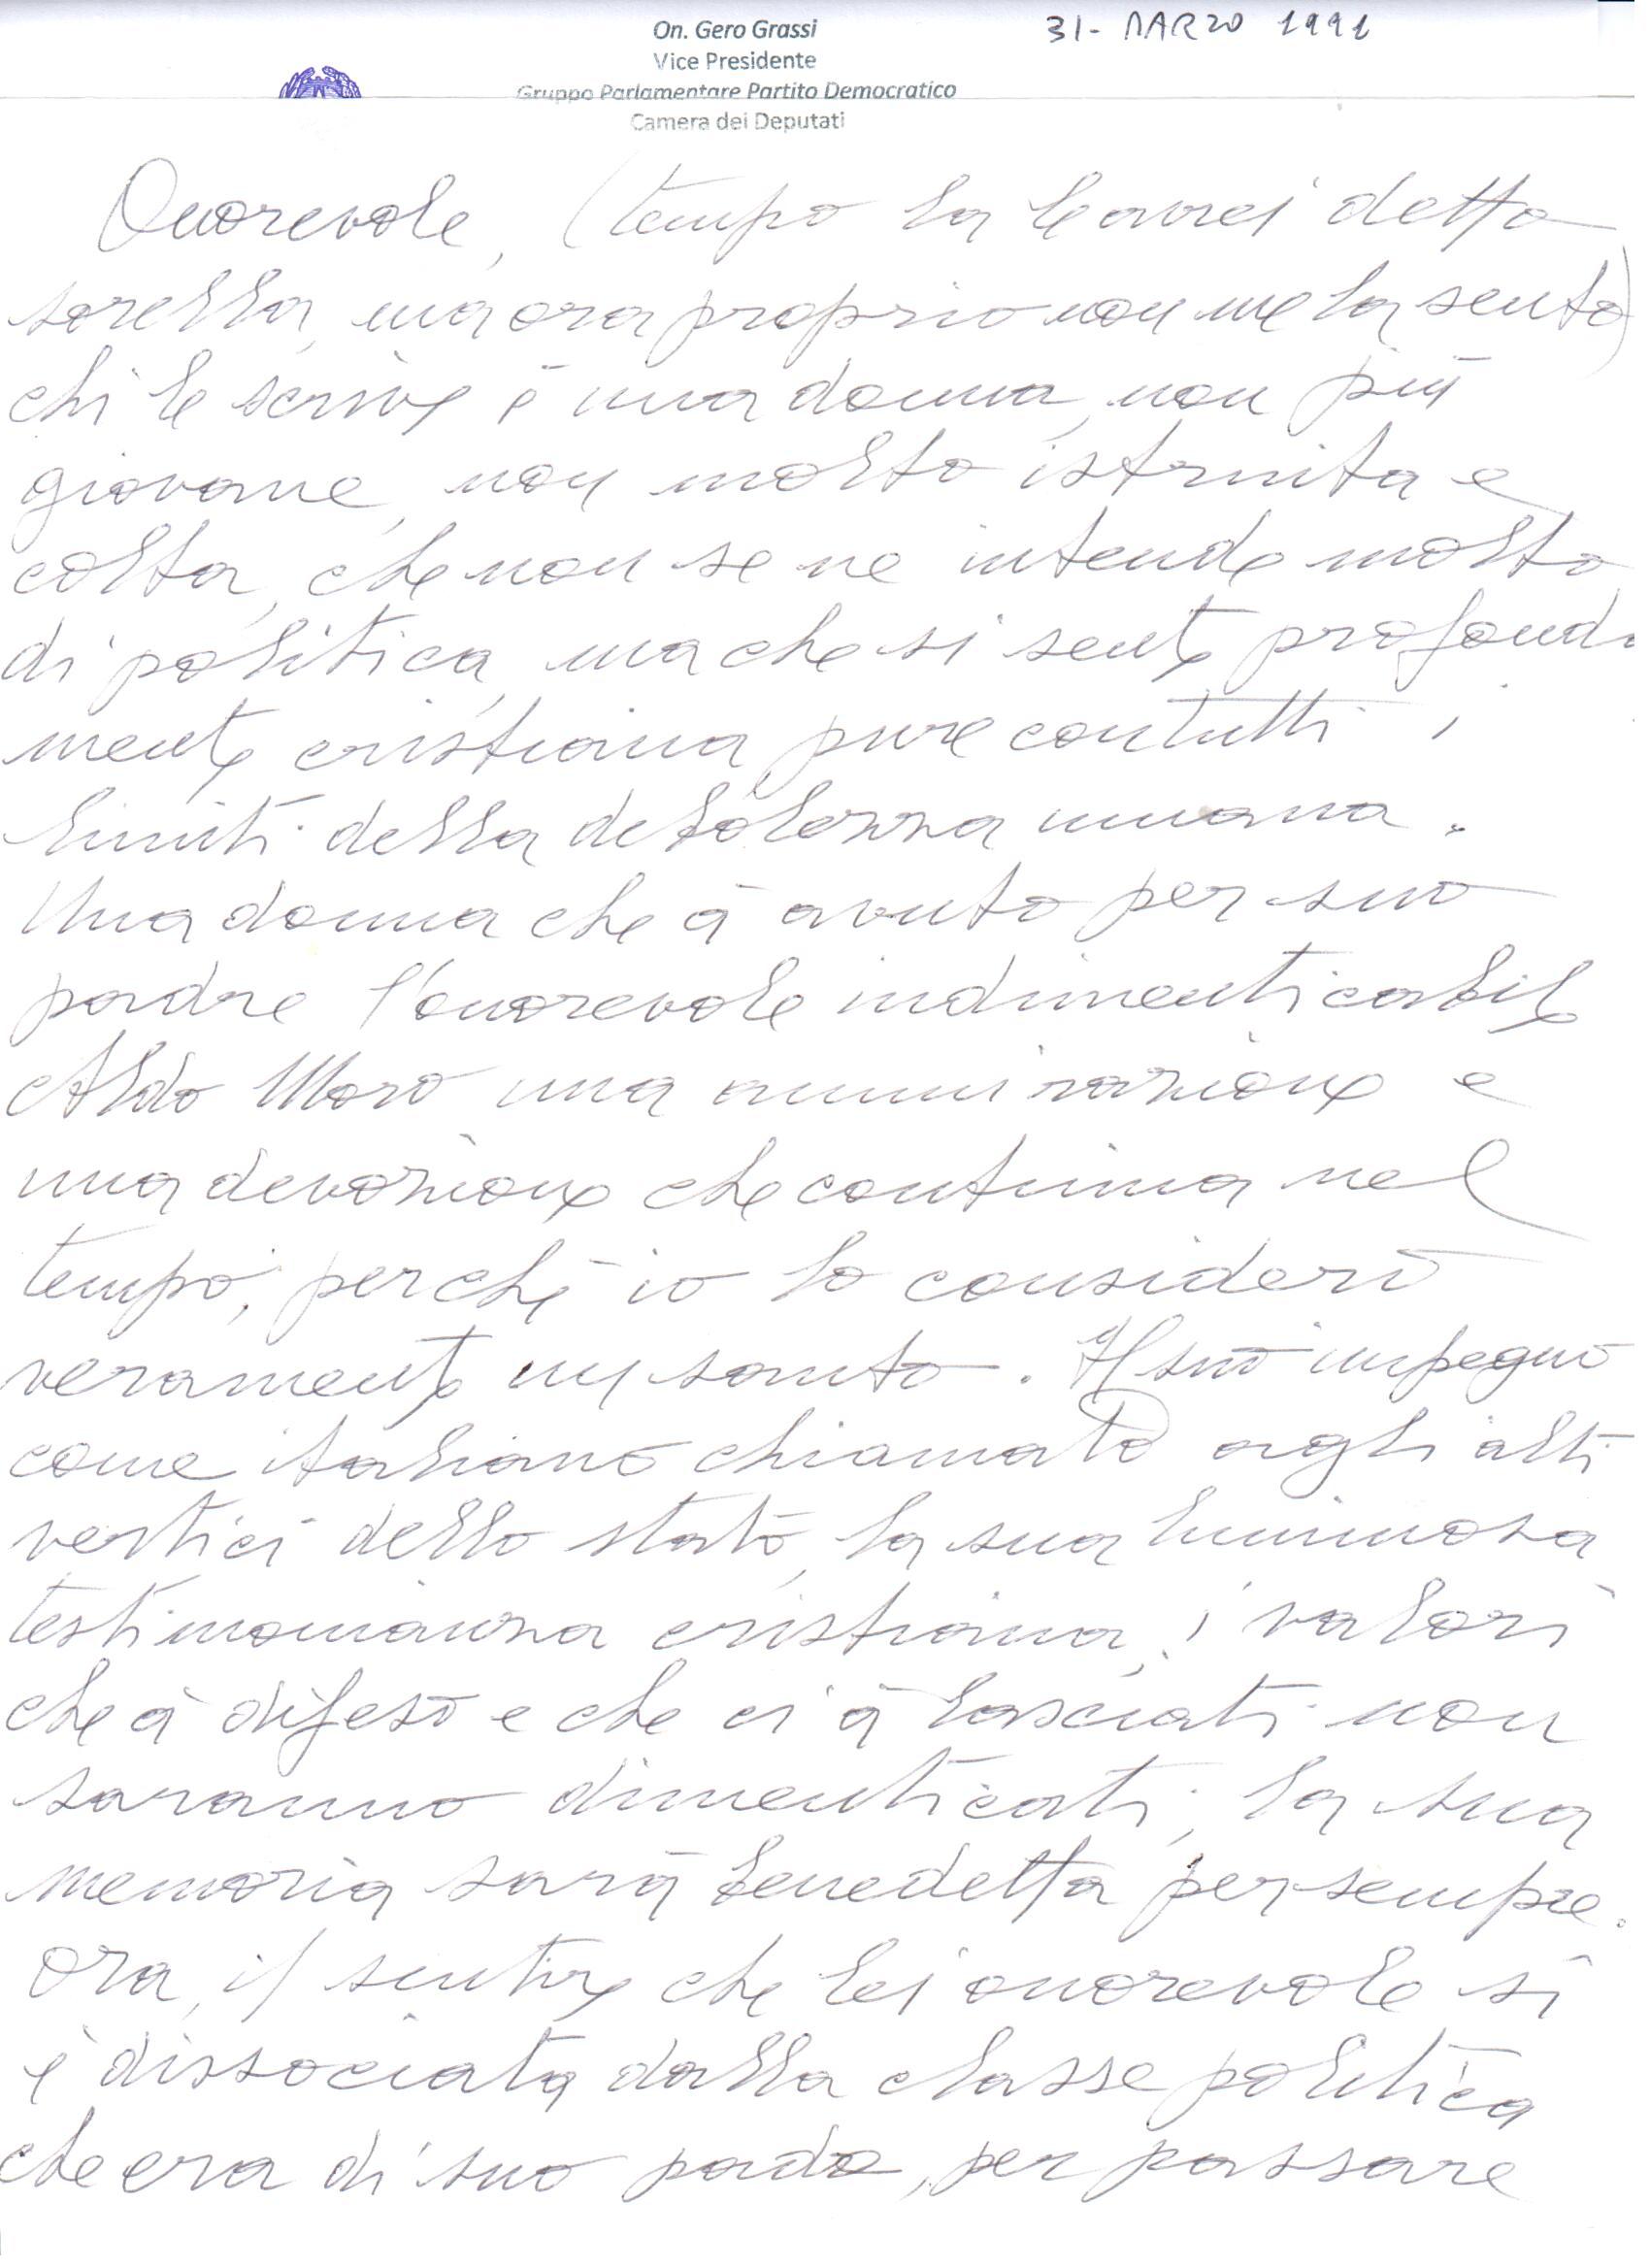 On. Gero Grassi
31- MARZO 1991
Vice Presidente
Gruppo Parlamentare Partito Democratico
Camera dei Deputati
Onorevole, (tempo fa le avrei detto
sorella, ma ora proprio non me la sento)
chi le scrive è una donna, non più
giovane, non molto istruita e
colta, che non se ne intende molto
di politica, ma che si sente profonda
mente cristiana, pure con tutti i
limiti della debolezza umana.
Una donna che à avuto per suo
padre l'onorevole indimenticabile
Aldo Moro una ammirazione e
una devozione che continua nel
tempo, perché io lo considero
veramente un santo. Il suo impegno
come italiano chiamato agli alti
vertici dello stato, la sua luminosa
testimonianza cristiana, i valori
che à difeso e che ci à lasciati non
saranno dimenticati, la sua
memoria sarà benedetta per sempre.
Ora, il sentire che lei onorevole si
è dissociata dalla classe politica
che era di suo padre, per passare